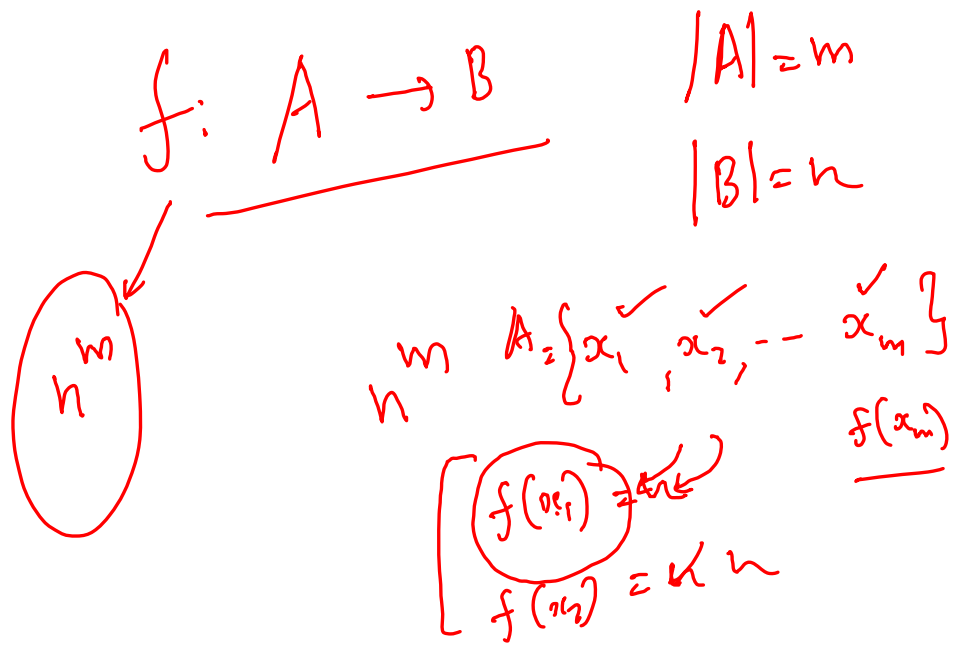 f: A → B
|A| = m
|B| = n
n^m
n^m A = {x₁, x₂, -- xₘ}
f(xₘ)
f(x₁) =
f(x₂) = n